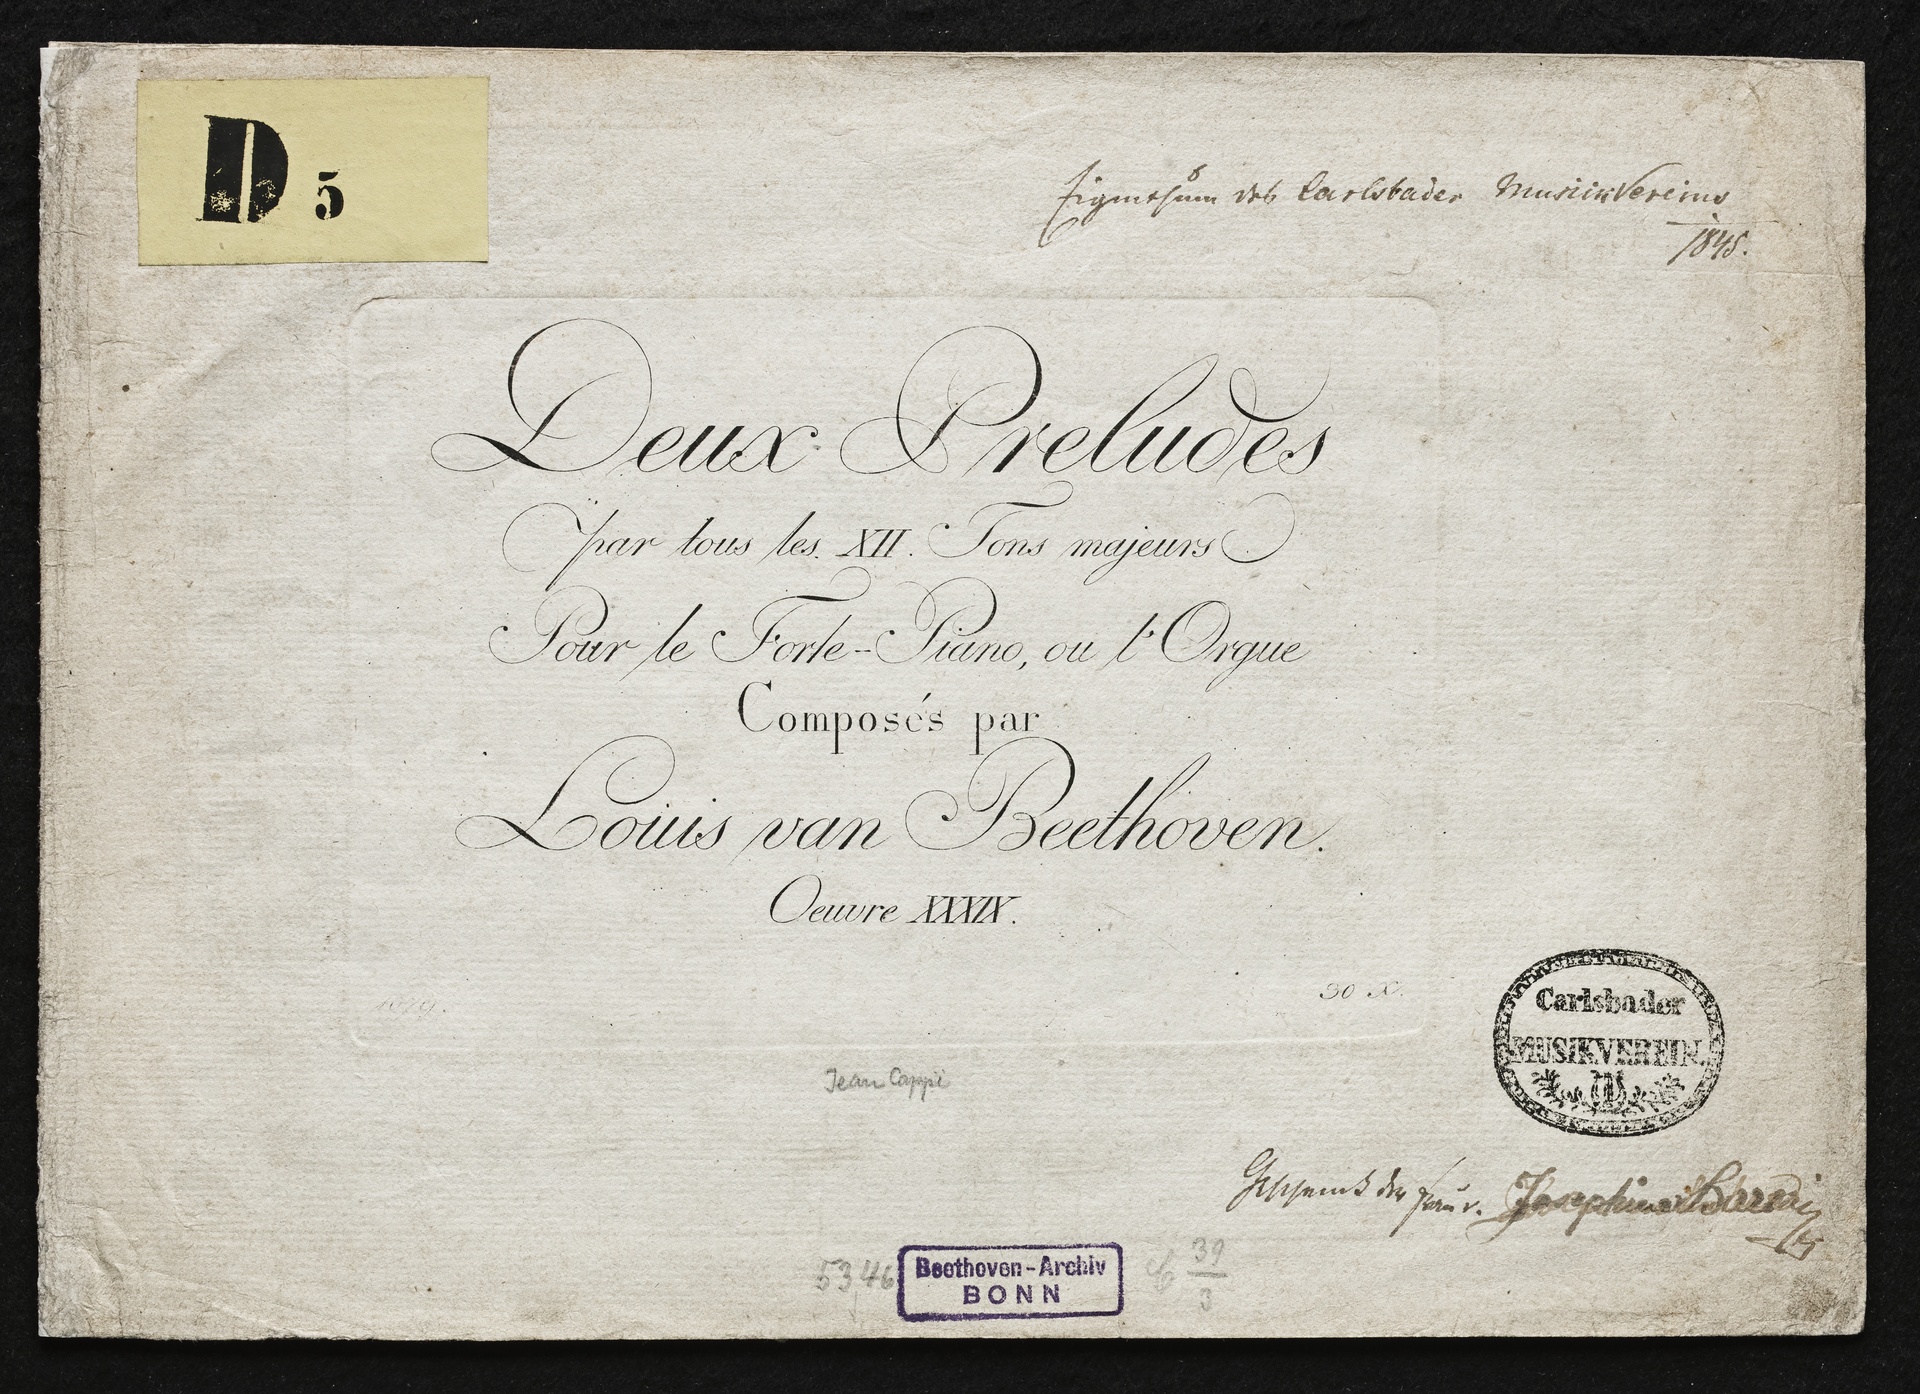 D 5
Eigenthum des Carlsbader Musikvereins
1845.
Deux Preludes
par tous les XII. Tons majeurs
Pour le Forte-Piano, ou l'Orgue
Composés par
Louis van Beethoven.
Oeuvre XXXIX.
30 X.
Jean Cappi
Carlsbader
MUSIKVEREIN.
Geschenk der Frau v. Josephine
5346
Beethoven-Archiv
BONN
C 39
3